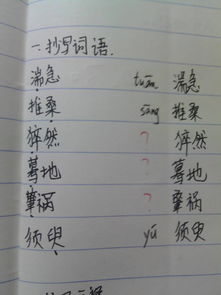 一.抄写词语.
湍急 tuān 湍急
推桑 sāng 推桑
猝然 ? 猝然
蓦地 ? 蓦地
肇祸 ? 肇祸
须臾 yú 须臾